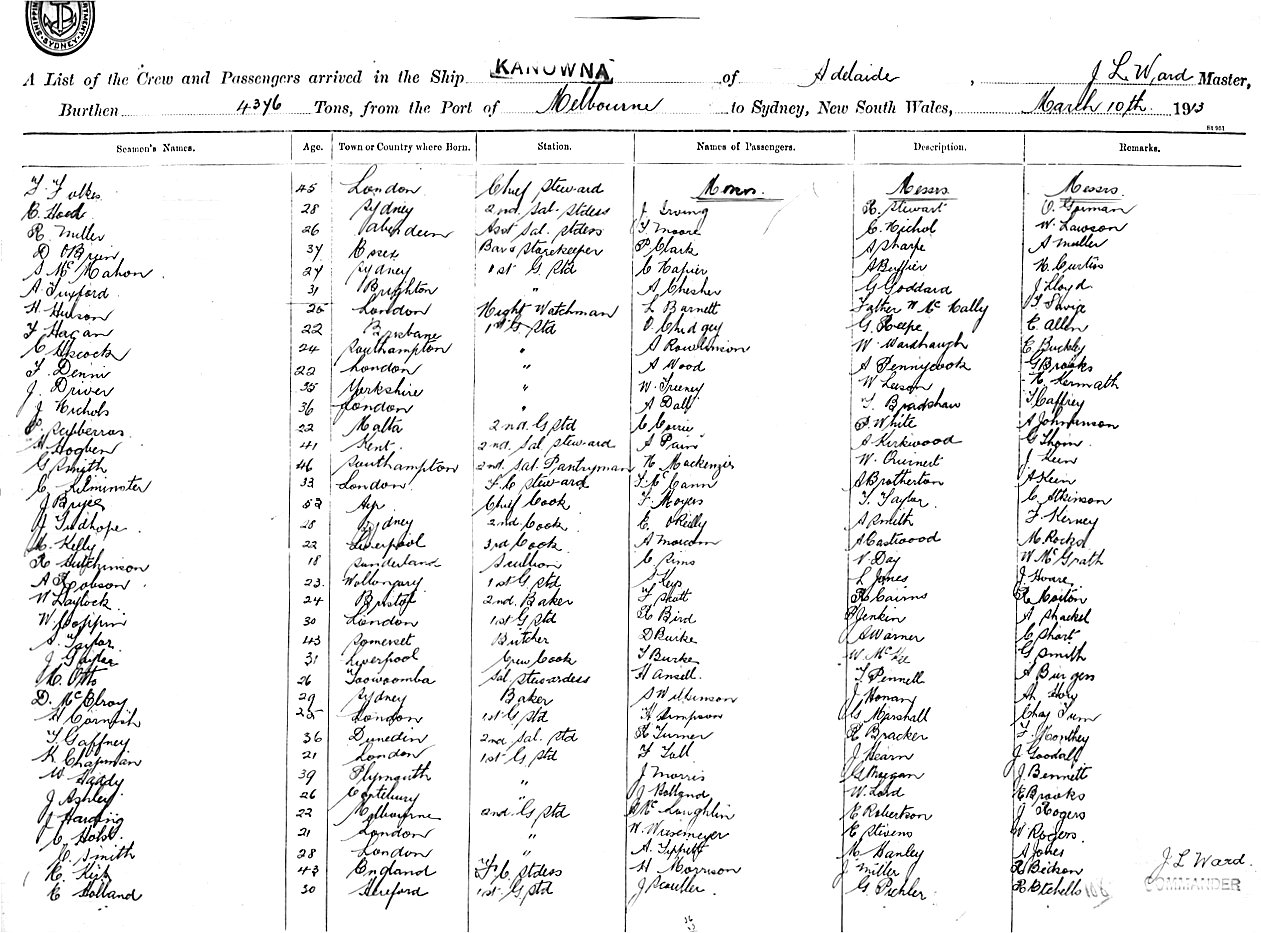 SYDNEY
A List of the Crew and Passengers arrived in the Ship KANOWNA of Adelaide, J L. Ward Master,
Burthen 4376 Tons, from the Port of Melbourne to Sydney, New South Wales, March 10th. 1913
Seamen's Names. Age. Town or Country where Born. Station. Names of Passengers. Description. Remarks.
45 London Chief Steward Messrs. Messrs Messrs.
C. Hood 28 Sydney 2nd. Sal. Stdess J. Irving R. Stewart O. Gorman
R. Miller 26 Aberdeen Asst Sal. Stdess T. Moore C. Nichol W. Lawson
D O'Brien 37 Essex Bar & Storekeeper P. Clark A Sharpe A Muller
S McMahon 27 Sydney 1st G. Std C Napier A Buffier H. Curtiss
A Tuxford 31 Brighton " A Chesher G Goddard J Lloyd
H. Huson 25 London Night Watchman L Barnett Father W McNally
F Hagan 22 Brisbane 1st G Std O. Chidgey G. Reepe E. Allen
C Hiscock 24 Southampton " A Rowlinson W. Wardhaugh E. Buckley
22 London " A Wood A Pennycook G Brooks
J. Driver 35 Yorkshire " W. Treeney W Leeson
J Nichols 36 London " A Dall T. Bradshaw T Caffrey
22 Malta 2nd. G Std C Corrie P. White A Johnson
H Hogben 41 Kent 2nd. Sal Steward A Pain A Kirkwood G Thom
G Smith 46 Southampton 2nd. Sal. Pantryman H. Mackenzie J. Keen
C. Kilminster 33 London F. C Steward J. McCann A Brotherton A Keen
J Bryce 52 Chief Cook T. Moyers T. Taylor C. Atkinson
J Tudhope 28 Sydney 2nd. Cook E. O'Reilly A Smith F. Kerney
M. Kelly 22 Liverpool 3rd Cook A Eastwood M. Rocks
R Hutchinson 18 Sunderland Scullion C Sims V Day W McGrath
A Robson 23 Wollongong 1st G Std S Keys L Jones J. Hoare
W Daylock 24 Bristol 2nd. Baker F Skott R Cairns R Morton
W. Coppin 30 London 1st G Std R Bird P Jenkin
S. Taylor 43 Somerset Butcher D Burke S Warner C Short
J Taylor 31 Liverpool Crew Cook T Burke G Smith
M. Otto 26 Toowoomba Sal Stewardess H Ansell. T. Pennell
D. McElroy 29 Sydney Baker S Wilkinson J Honan
H Cornish 25 London 1st G Std H Simpson G Marshall
T. Gaffney 36 Dunedin 2nd Sal. Std R Turner R Bracker
K. Chapman 21 London 1st G Std F Tull J Hearn J Goodall
W Haddy 39 Plymouth " J Morris J. Bennett
J Ashley 26 " J Holland W. Lord E Brooks
J Harding 22 Melbourne 2nd. G Std McLoughlin E Robertson J Rogers
C Holst 21 London " W. Wiesemeyer E Stivens W Rogers
E. Smith 28 London " A. Tippett M. Hanley A Jones
43 England F. C Stdess H Morrison J Miller J L Ward.
E Holland 30 Hereford 1st G. Std J Scouller. G. Pichler COMMANDER